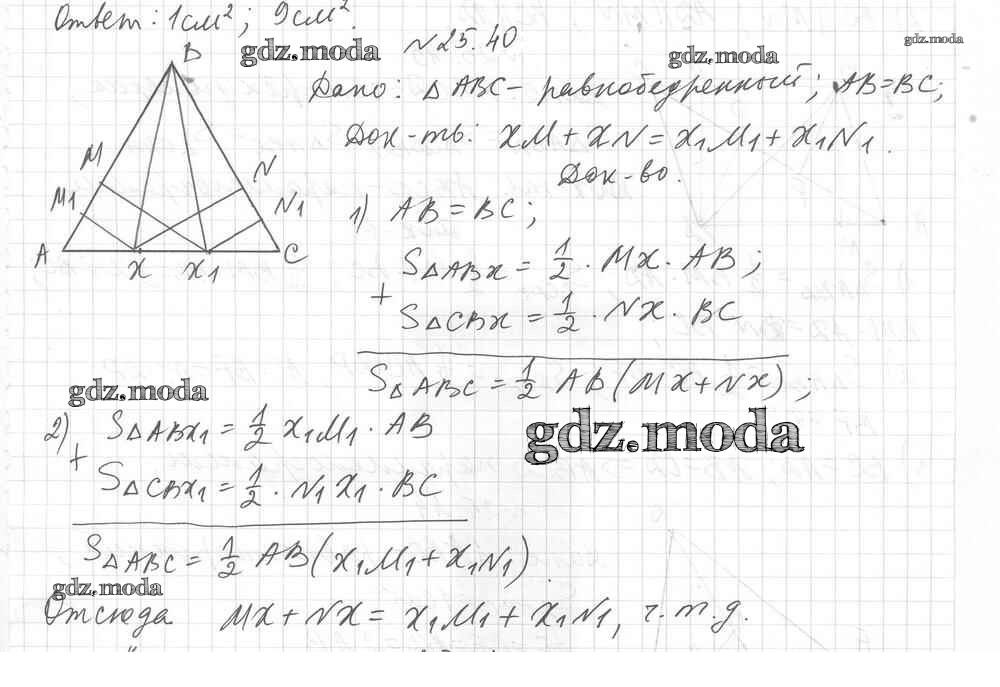 Ответ: 1см²; 9см².
№25.40
gdz.moda
gdz.moda
gdz.moda
Дано: △ABC - равнобедренный; AB=BC;
Док-ть: XM + XN = X₁M₁ + X₁N₁.
Док-во.
B
M
N
M1
N1
A
X
X1
C
1) AB = BC;
S△ABX = 1/2 · MX · AB;
+
S△CBX = 1/2 · NX · BC
S△ABC = 1/2 AB(MX+NX);
gdz.moda
gdz.moda
2) S△ABX₁ = 1/2 X₁M₁ · AB
+
S△CBX₁ = 1/2 · N₁X₁ · BC
S△ABC = 1/2 AB(X₁M₁ + X₁N₁).
gdz.moda
Отсюда MX + NX = X₁M₁ + X₁N₁, ч.т.д.